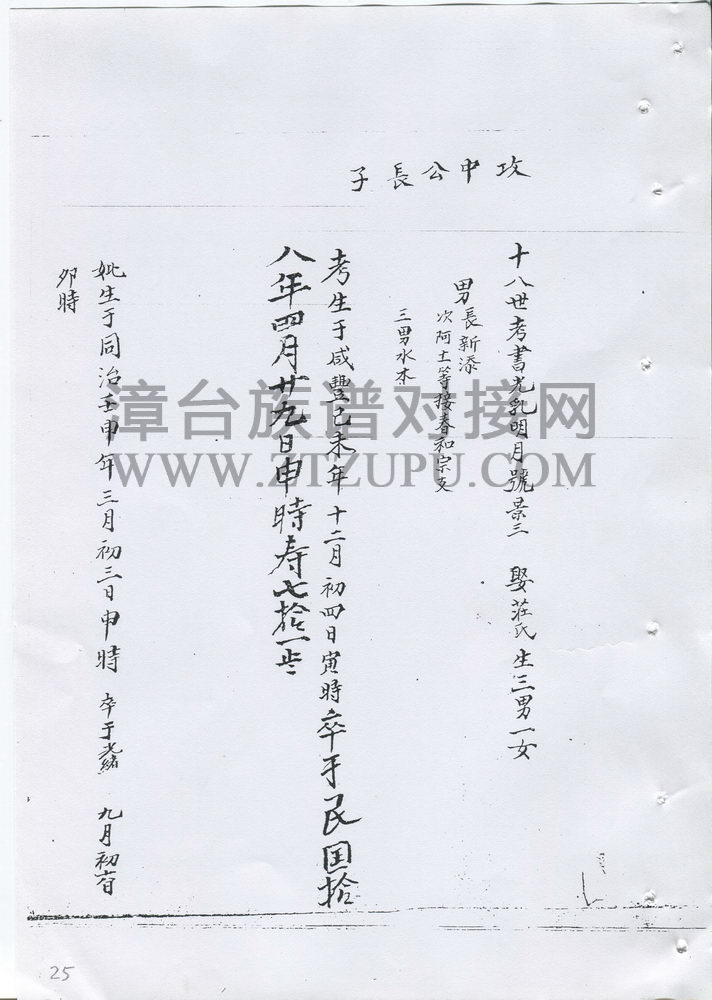 攻中公長子
十八世考書光乳明月號景三 娶莊氏生三男一女
男長新添
次阿土等接春和宗支
三男水木
考生于咸豐己未年十二月初四日寅時卒于民国拾
八年四月廿九日申時寿七拾一歲
妣生于同治壬申年三月初三日申時 卒于光緒 九月初
卯時
漳台族谱对接网
WWW.ZTZUPU.COM
25